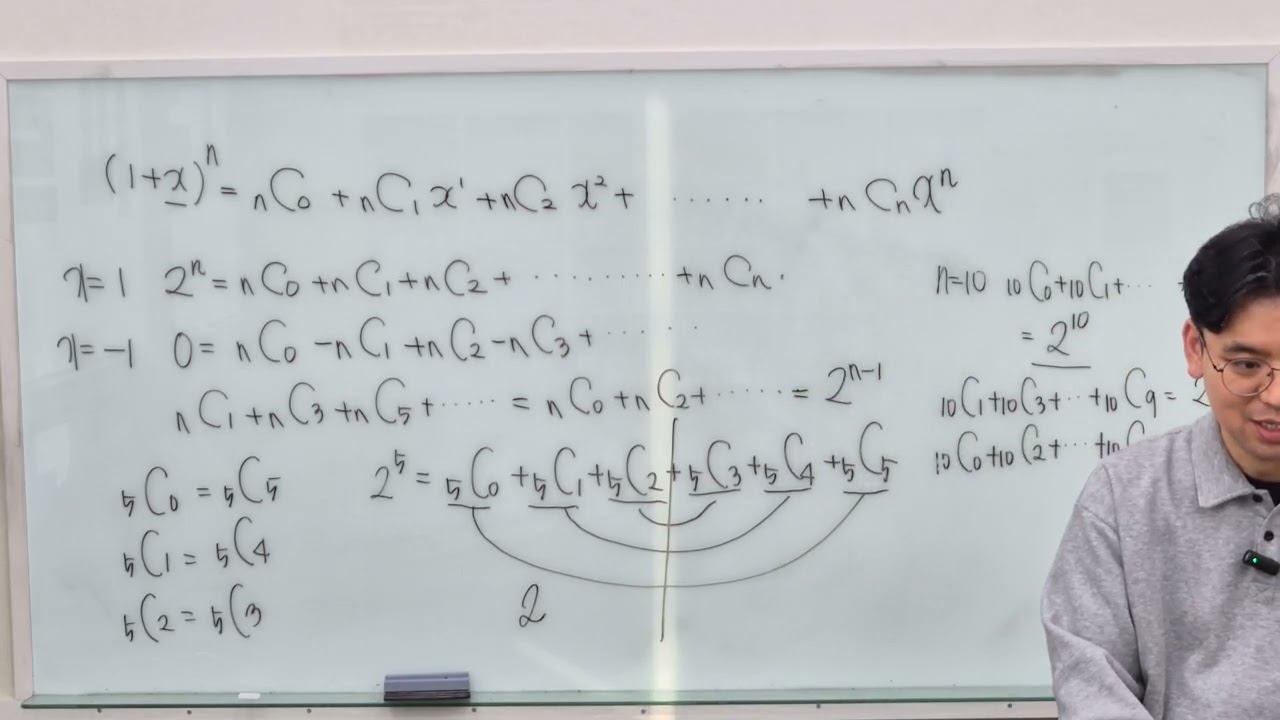 (1+x)ⁿ = nC₀ + nC₁ x¹ + nC₂ x² + ······ + nCₙ xⁿ
x=1 2ⁿ = nC₀ + nC₁ + nC₂ + ········· + nCₙ.
x=-1 0 = nC₀ - nC₁ + nC₂ - nC₃ + ······
nC₁ + nC₃ + nC₅ + ····· = nC₀ + nC₂ + ······ = 2ⁿ⁻¹
2⁵ = ₅C₀ + ₅C₁ + ₅C₂ + ₅C₃ + ₅C₄ + ₅C₅
2
₅C₀ = ₅C₅
₅C₁ = ₅C₄
₅C₂ = ₅C₃
n=10 ₁₀C₀ + ₁₀C₁ + ···
= 2¹⁰
₁₀C₁ + ₁₀C₃ + ·· + ₁₀C₉ =
₁₀C₀ + ₁₀C₂ + ··· +